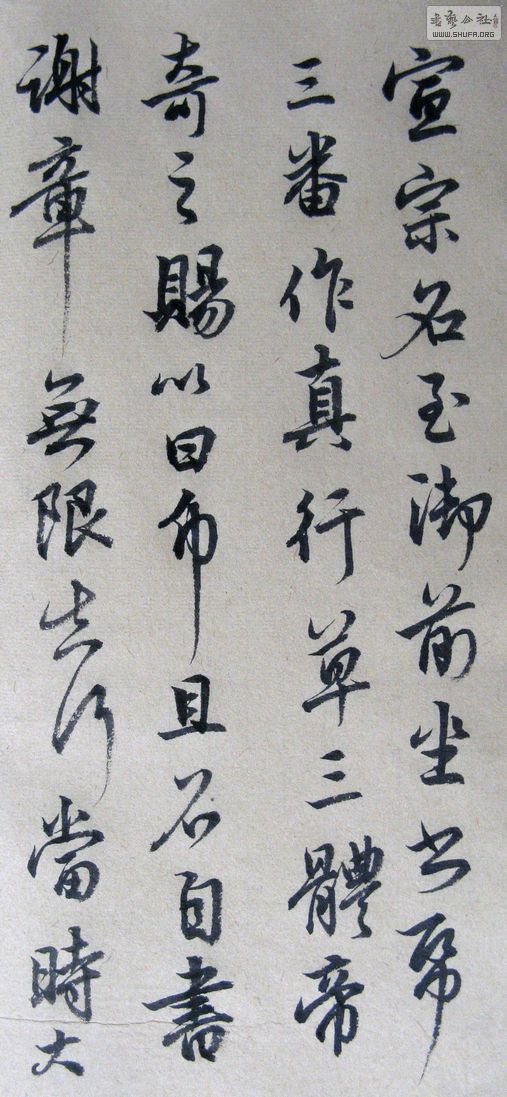 書藝公社
WWW.SHUFA.ORG
宣宗名至御前坐书帋
三番作真行草三體帝
奇之賜以曰布且名自書
謝章無限真行當時大